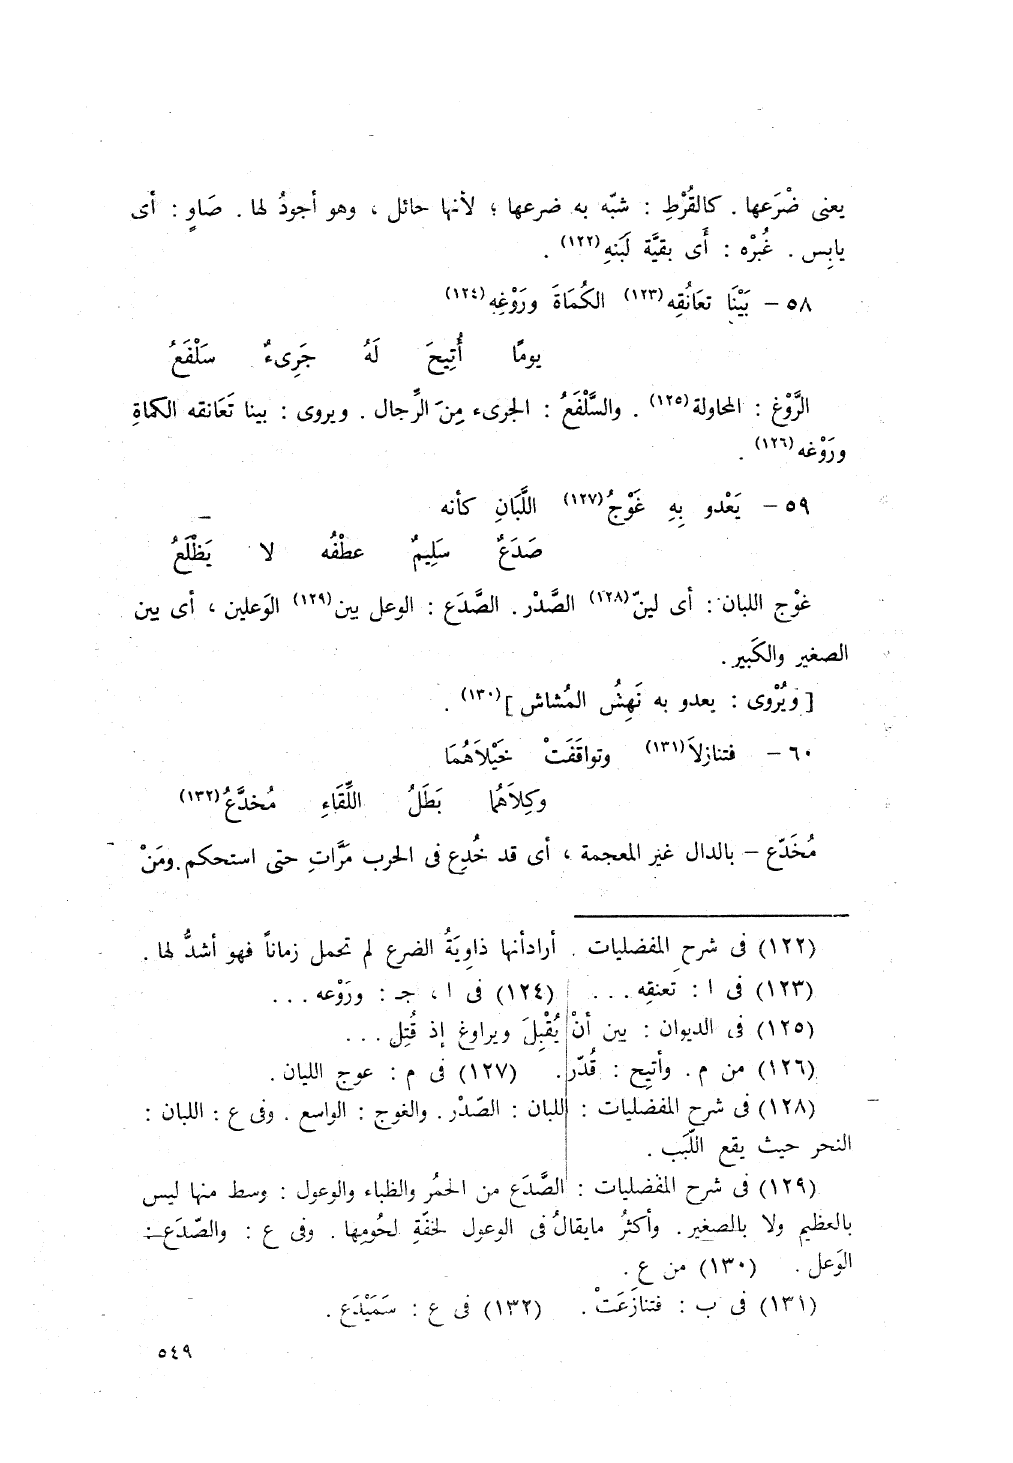 يعنى ضْرَعها . كالقُرْطِ : شبّه به ضرعها ؛ لأنها حائل ، وهو أجودُ لها . صَاوٍ : أى
يابِس . غُبْره : أَى بقيَّة لَبَنهِ (١٢٢) .
٥٨ – بَيْنَا تعَانُقِه (١٢٣) الكُمَاةَ ورَوْغِه (١٢٤)
يومًا أُتِيحَ لَهُ جَرِىءٌ سَلْفَعُ
الرَّوْغ : المحاولة (١٢٥) . والسَّلْفَعُ : الجرىء مِنَ الرِّجال . ويروى : بينا تَعَانقه الكماةِ
ورَوْغه (١٢٦) .
٥٩ – يَعْدو بِهِ غَوْجُ (١٢٧) اللَّبَانِ كأنه
صَدَعٌ سَلِيمٌ عطْفُه لا يَظْلَعُ
غوْج اللبان : أى لينّ (١٢٨) الصَّدْر . الصَّدَع : الوعل بين (١٢٩) الوَعلين ، أى بين
الصغير والكَبير .
[ ويُرْوى : يعدو به نَهِشُ المُشاش ] (١٣٠) .
٦٠ – فتنازلاَ (١٣١) وتواقَفَتْ خَيْلاَهُمَا
وكِلاَهُمَا بَطَلُ اللِّقَاءِ مُخدَّعُ (١٣٢)
مُخَدّع – بالدال غير المعجمة ، أى قد خُدِع فى الحرب مَرَّاتِ حتى استحكم . ومَنْ
(١٢٢) فى شرح المفضليات . أرادأنها ذاوِيَةُ الضرع لم تحمل زماناً فهو أشدُّ لها .
(١٢٣) فى ا : تَعنقِه . . . (١٢٤) فى ا ، جـ : ورَوْعه . . .
(١٢٥) فى الديوان : بين أنْ يُقْبِلَ ويراوغ إذ قُتِل . . .
(١٢٦) من م . وأتيح : قُدّر . (١٢٧) فى م : عوج الليان .
(١٢٨) فى شرح المفضليات : اللبان : الصّدْر . والغوج : الواسع . وفى ع : اللبان :
النحر حيث يقع اللّبَب .
(١٢٩) فى شرح المفضليات : الصَّدَع من الحمُر والظباء والوعول : وسط منها ليس
بالعظيم ولا بالصغير . وأكثرُ مايقالُ فى الوعول لخفّةِ لحُومِها . وفى ع : والصّدَع :
الوَعل . (١٣٠) من ع .
(١٣١) فى ب : فتنازَعَتْ . (١٣٢) فى ع : سَمَيْدَع .
٥٤٩